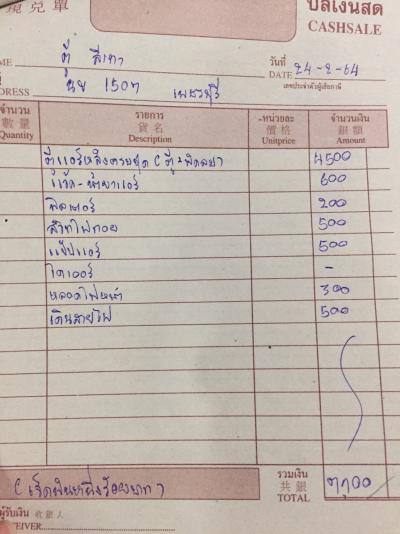 現兌單
บิลเงินสด
CASHSALE
NAME ตู้ สีเทา
วันที่
DATE 24-2-64
ADDRESS นข 1507 เพชรบุรี
เลขประจำตัวผู้เสียภาษี
จำนวน รายการ หน่วยละ จำนวนเงิน
數量 貨名 價格 銀額
Quantity Description Unitprice Amount
ตู้แอร์หลัง 4500
แว็ค-น้ำยาแอร์ 600
ฟิลเตอร์ 200
สวิทไฟถอย 500
แป๊ปแอร์ 500
ไดเออร์ -
หลอดไฟหน้า 300
เดินสายไฟ 500
(เจ็ดพันหนึ่งร้อยบาท)
รวมเงิน
共銀
TOTAL 7100
ผู้รับเงิน 收銀人
EIVER